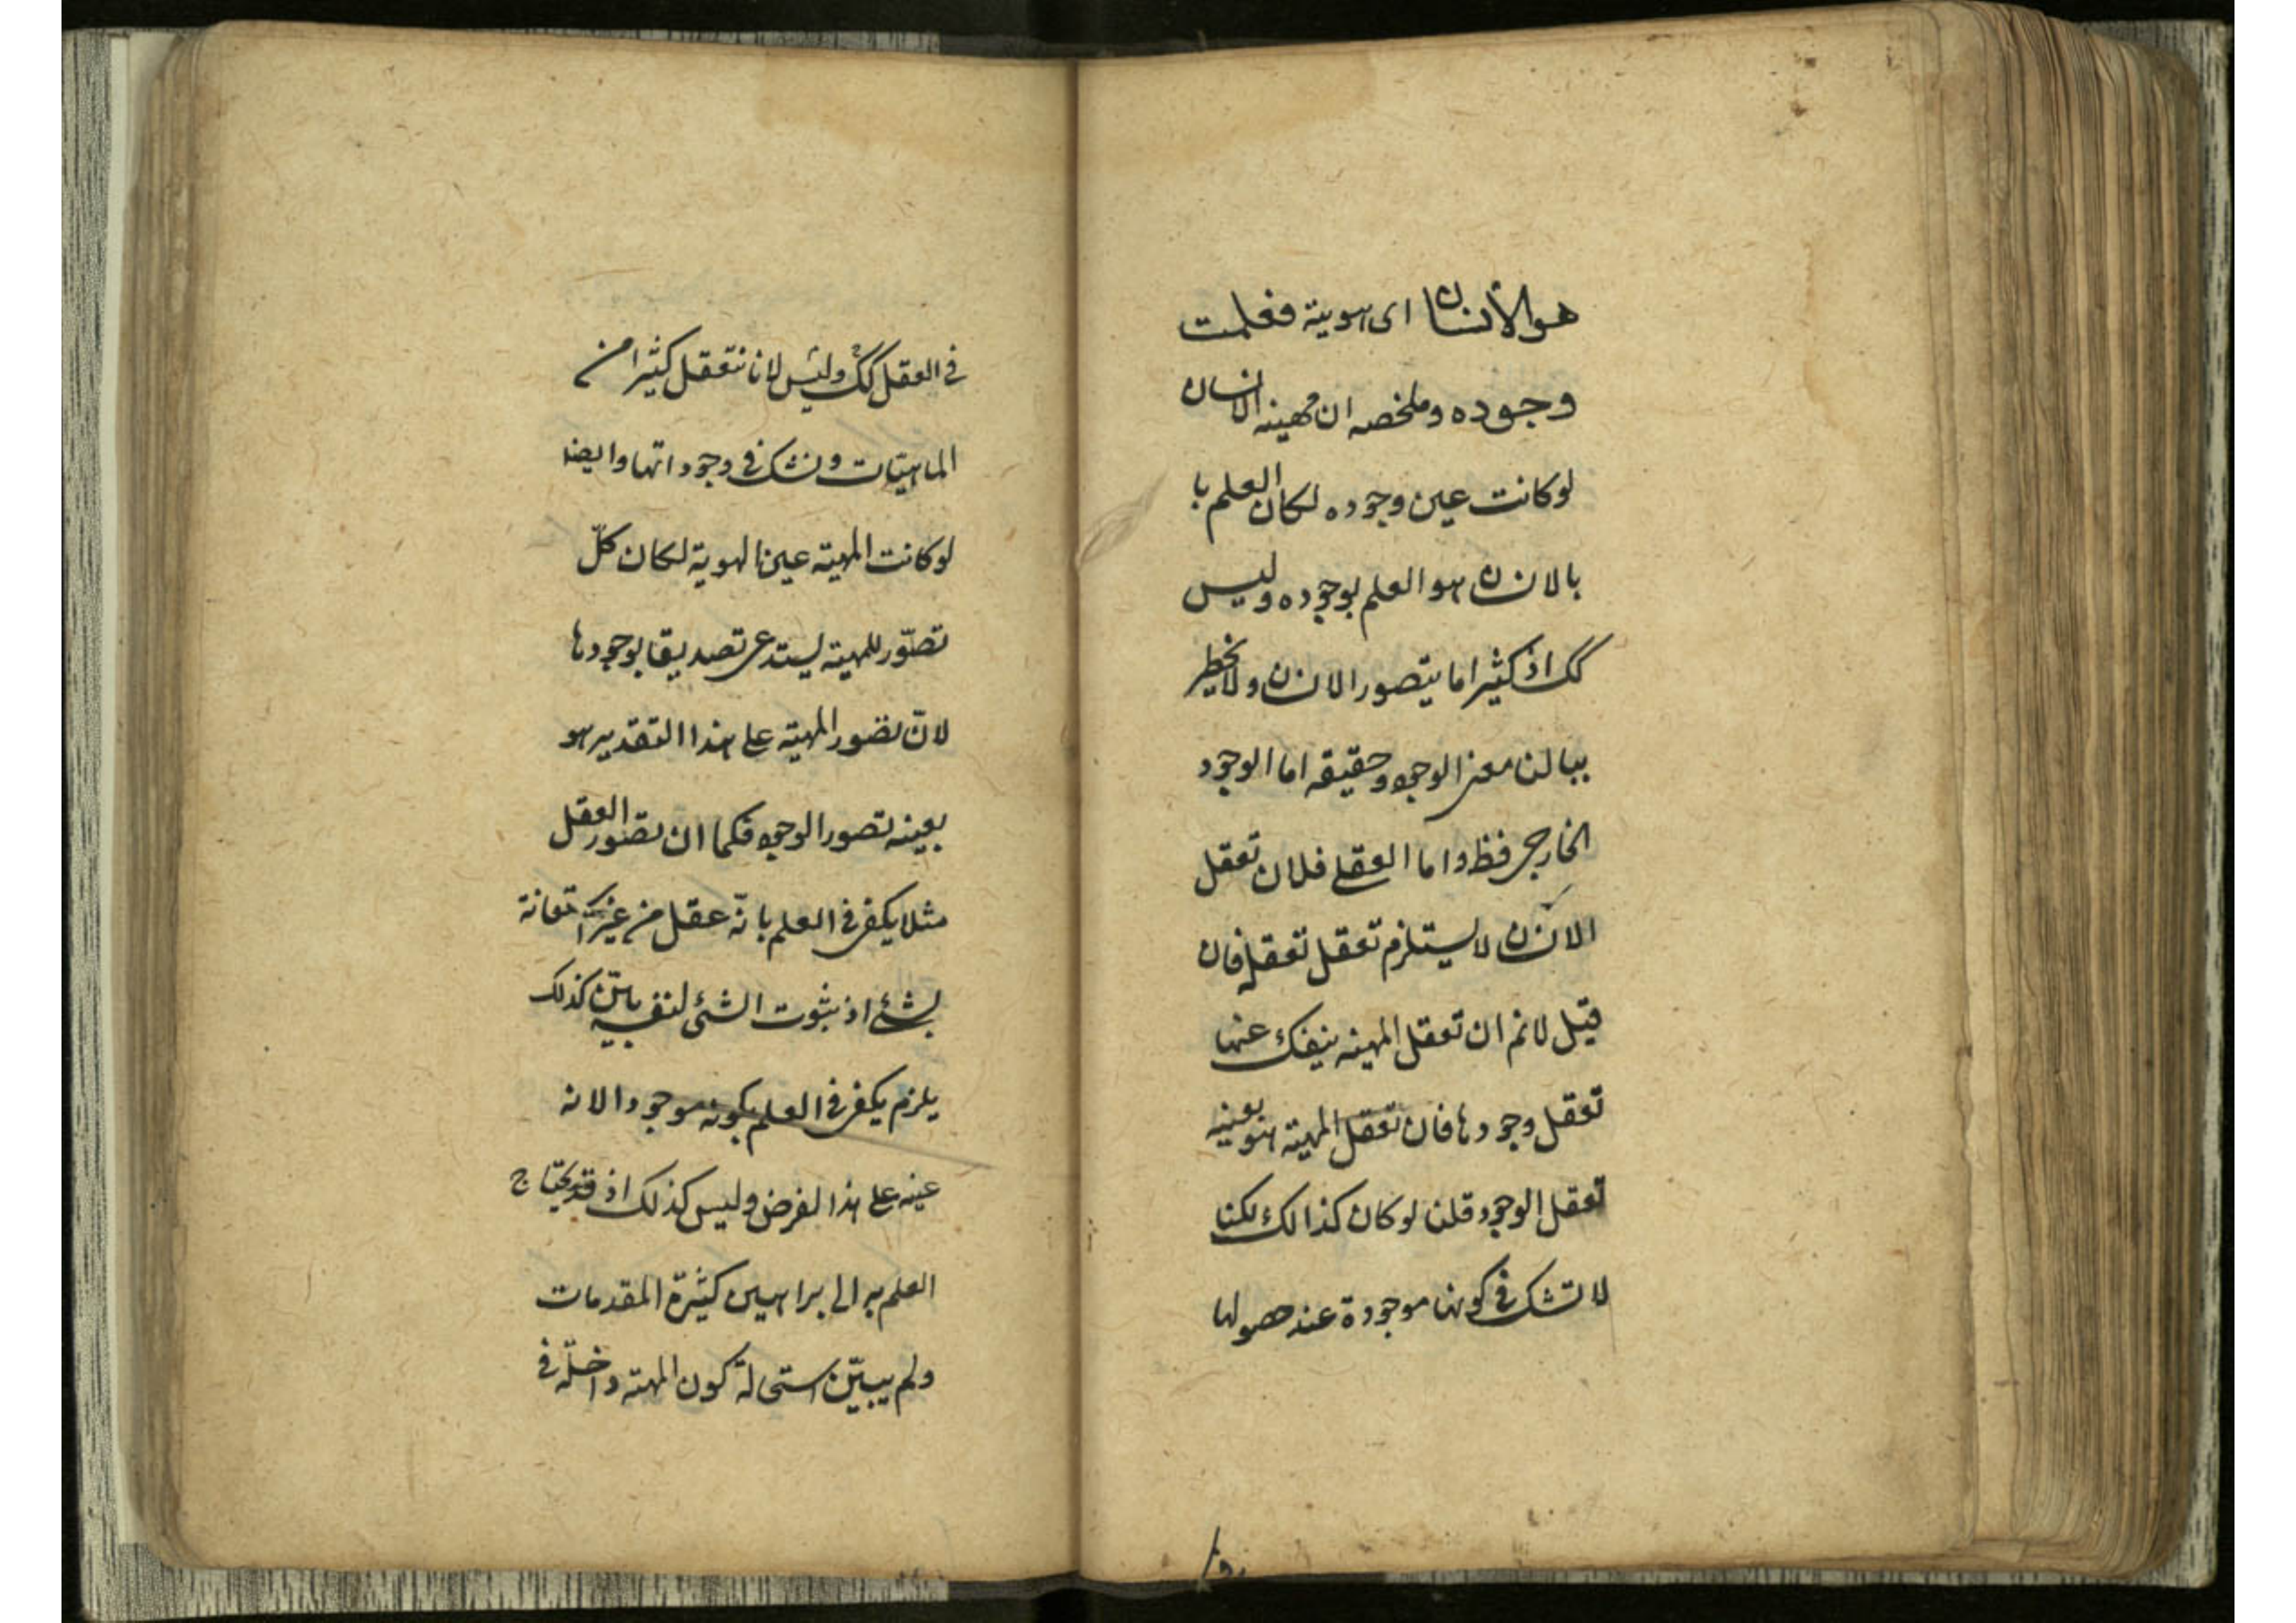 هو الأنسان اى هويته فعلمت
وجوده وملخصه ان مهية الانسان
لوكانت عين وجوده لكان العلم با
بالانن هو العلم بوجوده وليس
كك اذ كثيرا ما يتصور الانن ولا يخطر
ببالنا معنى الوجود وحقيقه اما الوجود
الخارجى فظ واما العقلى فلان تعقل
الانن لا يستلزم تعقل تعقله فان
قيل لانم ان تعقل المهية ينفك عنها
تعقل وجودها فان تعقل المهية هو بعينه
تعقل الوجود قلنا لو كان كذالك لكنا
لا تشك فى كونها موجودة عند حصولها
فى العقل كك وليس لانا نتعقل كثيرا من
الماهيات ونشك فى وجوداتها وايضا
لوكانت المهية عين الهوية لكان كلّ
تصوّر للمهية يستدعى تصديقا بوجودها
لانّ تصور المهية على هذا التقدير هو
بعينه تصور الوجود فكما ان تصور العقل
مثلا يكفى فى العلم بانّه عقل من غير
لشئ اذ ثبوت الشئ لنفسه بيّن كذلك
يلزم يكفى فى العلم بكونه موجودا لانه
عينه على هذا الفرض وليس كذلك اذ قد يحتاج
العلم به الى براهين كثيرة المقدمات
ولم يبيّن استحالة كون المهية داخلة فى